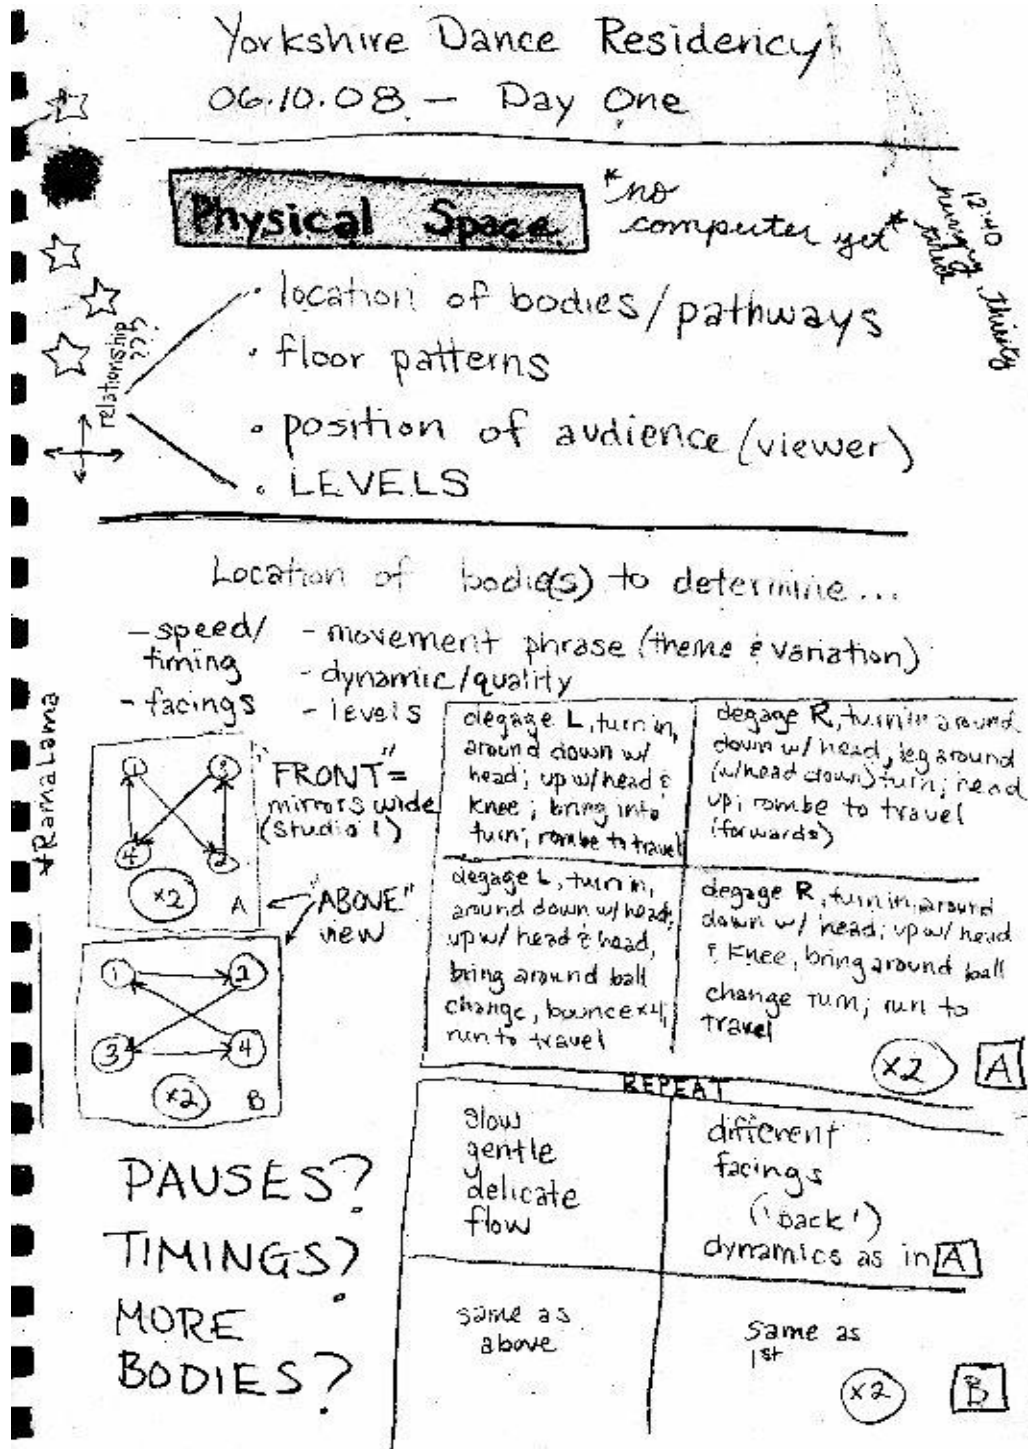 Yorkshire Dance Residency
06.10.08 - Day One
Physical Space
*no
computer yet*
12:40
hungry
thirsty
relationship
???
• location of bodies/pathways
• floor patterns
• position of audience (viewer)
• LEVELS
Location of bodie(s) to determine...
- speed/
timing
- facings
- movement phrase (theme & variation)
- dynamic/quality
- levels
*RamaLama
1
3
4
2
x2
A
"FRONT" =
mirrors wide
(studio 1)
"ABOVE"
view
1
2
3
4
x2
B
degage L, turn in,
around down w/
head; up w/ head &
knee; bring into
turn; rombe to travel
degage R, turn in around
down w/ head, leg around
(w/head down) turn; head
up; rombe to travel
(forwards)
degage L, turn in,
around down w/ head,
up w/ head & head,
bring around ball
change, bounce x4,
run to travel
degage R, turn in, around
down w/ head; up w/ head
& knee, bring around ball
change turn; run to
travel
x2
A
REPEAT
slow
gentle
delicate
flow
different
facings
('back')
dynamics as in A
same as
above
same as
1st
x2
B
PAUSES?
TIMINGS?
MORE
BODIES?